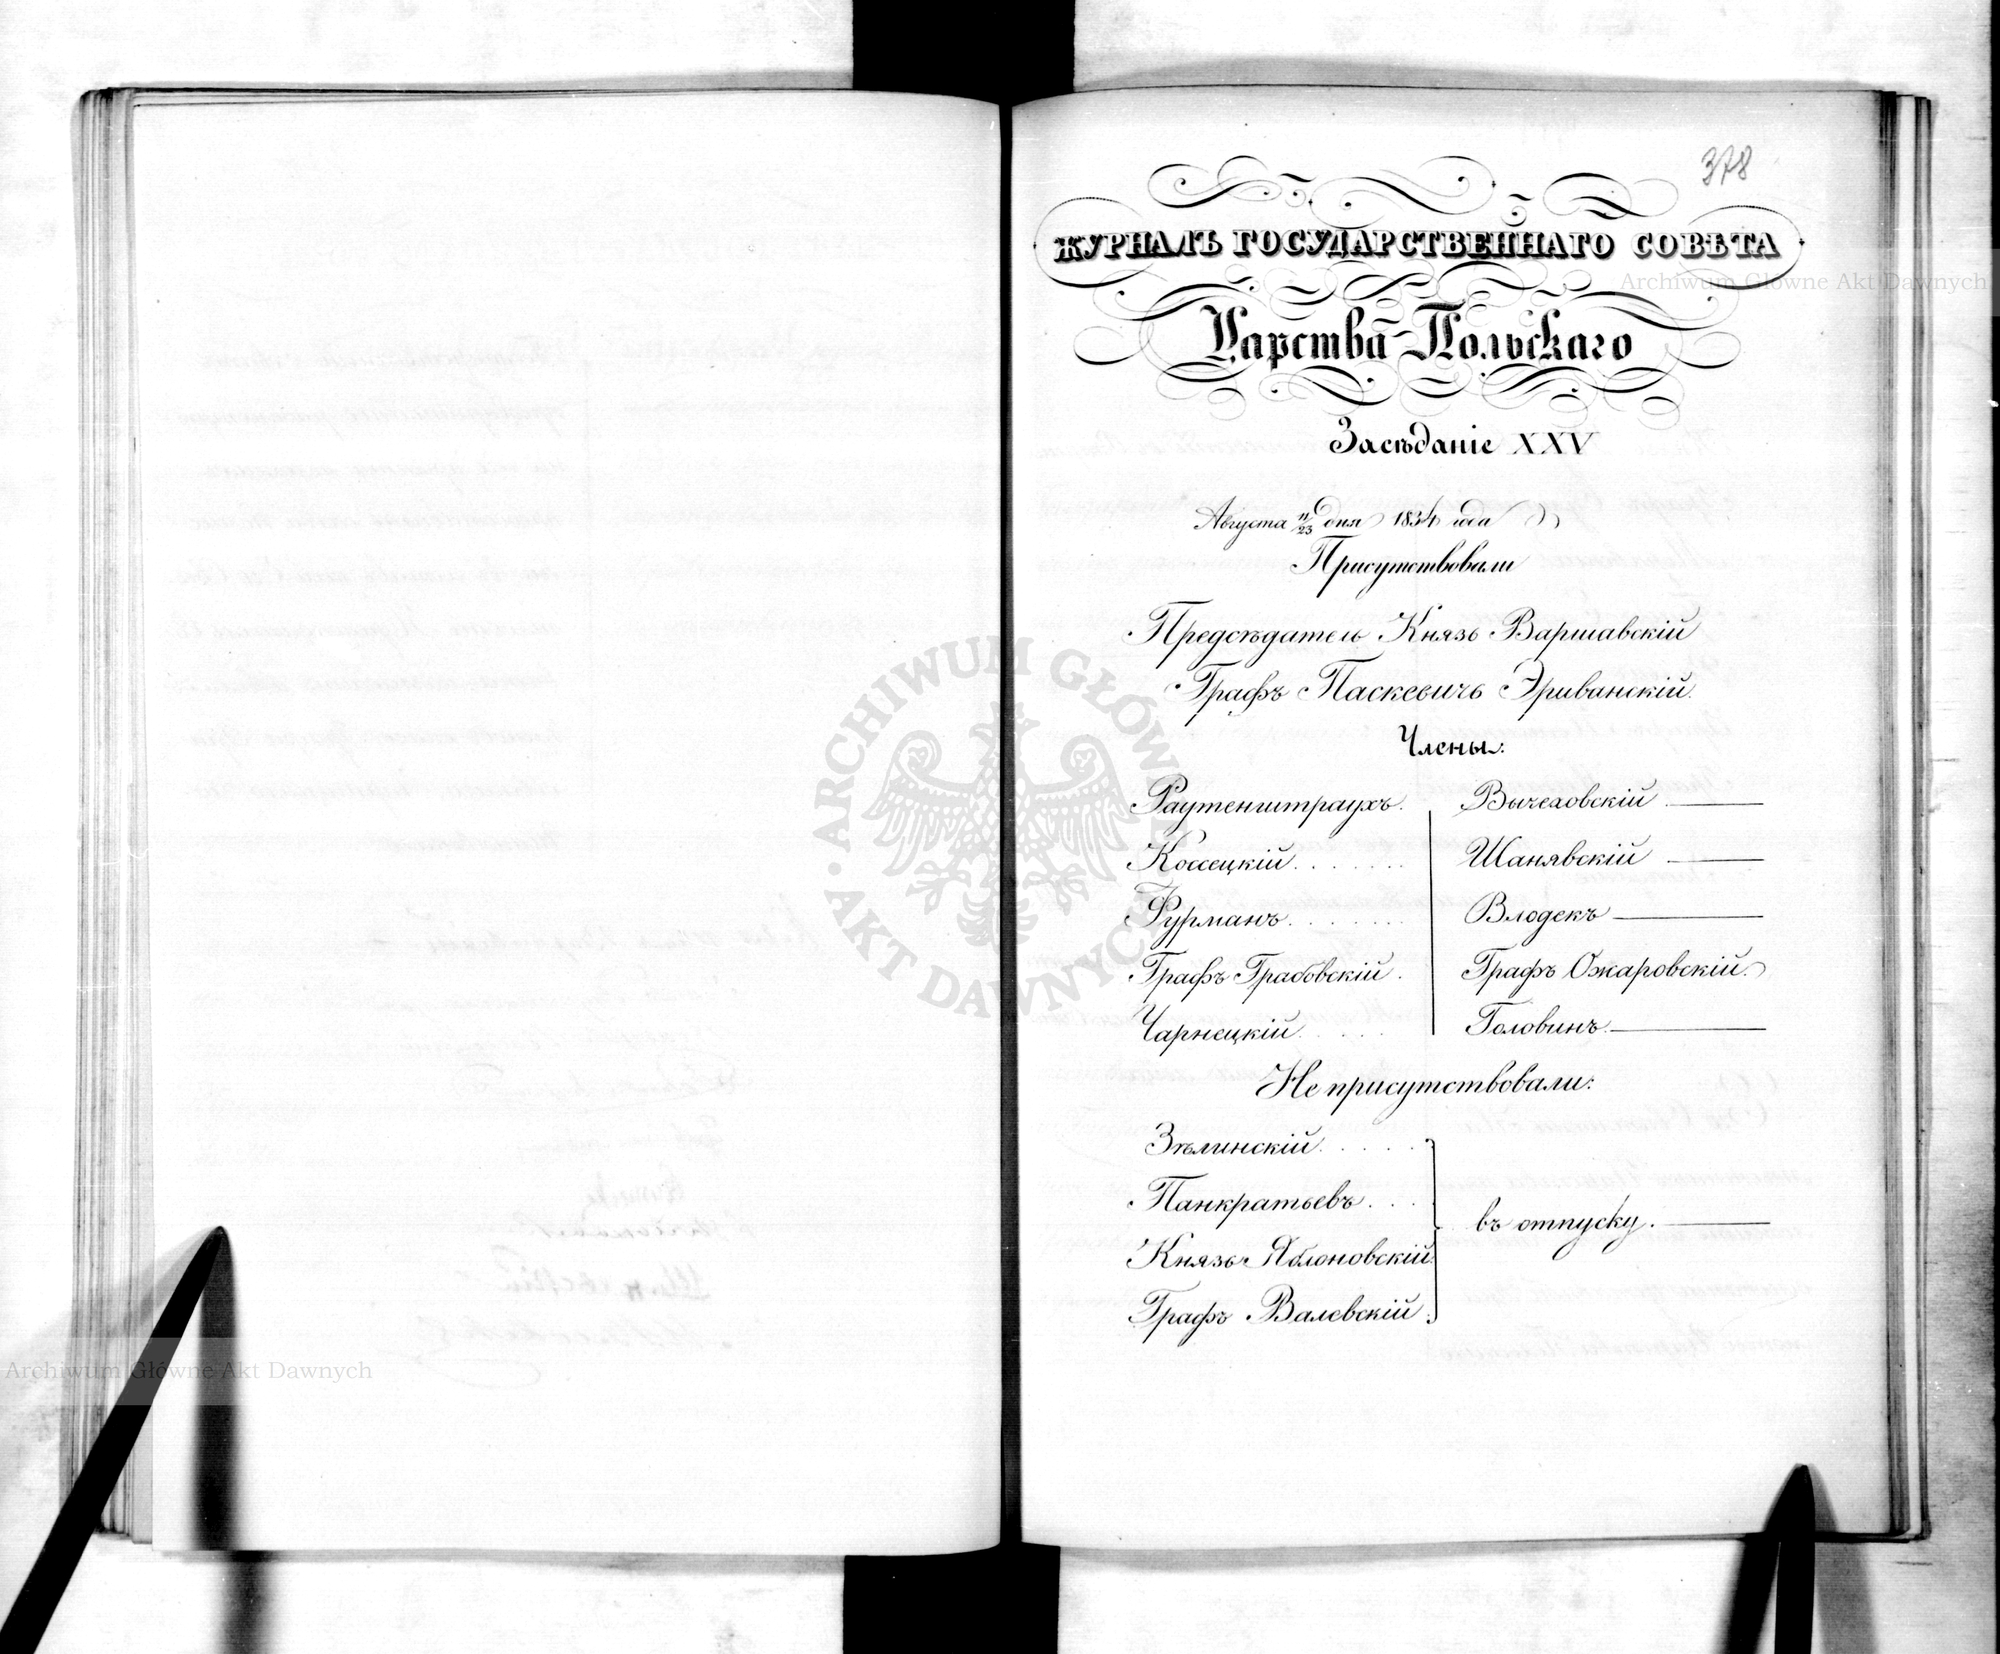 378
ЖУРНАЛЪ ГОСУДАРСТВЕННАГО СОВѢТА
Царства Польскаго
Засѣданіе XXV
Августа 11/23 дня 1834 года
Присутствовали
Предсѣдатель Князь Варшавскій
Графъ Паскевичъ Эриванскій.
Члены:
Раутенштраухъ. Вычеховскій
Коссецкій Шанявскій
Фурманъ Влодекъ
Графъ Грабовскій Графъ Ожаровскій.
Чарнецкій Головинъ
Не присутствовали:
Зѣлинскій
Панкратьевъ
въ отпуску.
Князь Яблоновскій
Графъ Валевскій
Archiwum Główne Akt Dawnych
Archiwum Główne Akt Dawnych
ARCHIWUM GŁÓWNE AKT DAWNYCH